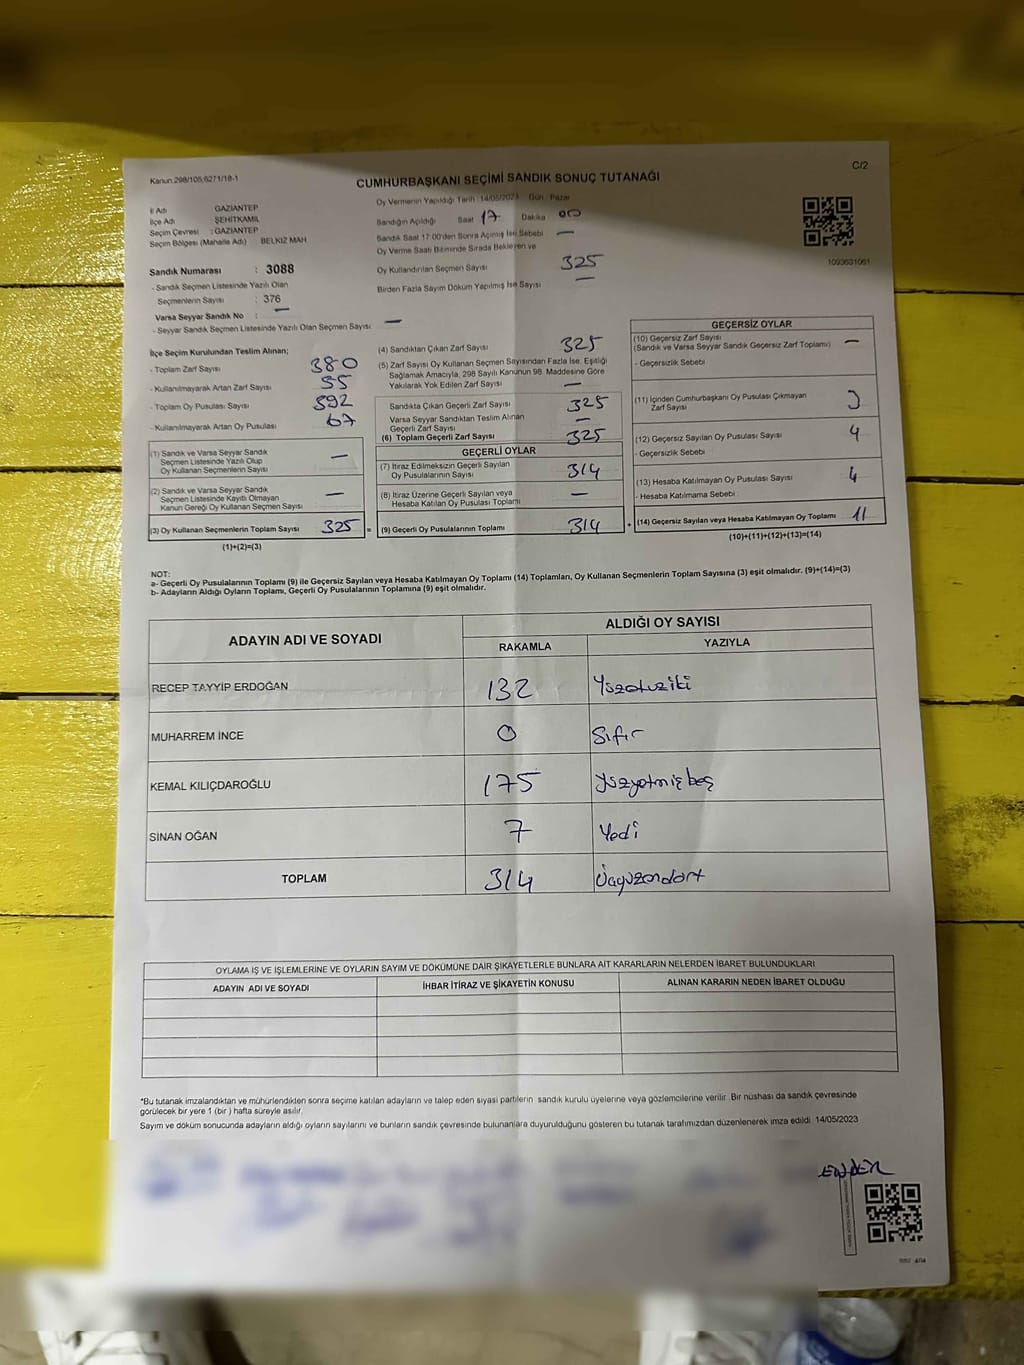 C/2
Kanun:298/105,6271/18-1
CUMHURBAŞKANI SEÇİMİ SANDIK SONUÇ TUTANAĞI
İl Adı GAZİANTEP
İlçe Adı ŞEHİTKAMİL
Seçim Çevresi : GAZİANTEP
Seçim Bölgesi (Mahalle Adı) BELKIZ MAH
Sandık Numarası : 3088
- Sandık Seçmen Listesinde Yazılı Olan
Seçmenlerin Sayısı : 376
Varsa Seyyar Sandık No —
- Seyyar Sandık Seçmen Listesinde Yazılı Olan Seçmen Sayısı: —
Oy Vermenin Yapıldığı Tarih :14/05/2023 Gün : Pazar
Sandığın Açıldığı Saat 17 Dakika 00
Sandık Saat 17:00'den Sonra Açılmış İse Sebebi —
Oy Verme Saati Bitiminde Sırada Bekleyen ve
Oy Kullandırılan Seçmen Sayısı 325
Birden Fazla Sayım Döküm Yapılmış İse Sayısı —
1093631061
İlçe Seçim Kurulundan Teslim Alınan;
- Toplam Zarf Sayısı 380
- Kullanılmayarak Artan Zarf Sayısı 55
- Toplam Oy Pusulası Sayısı 392
- Kullanılmayarak Artan Oy Pusulası 67
(1) Sandık ve Varsa Seyyar Sandık
Seçmen Listesinde Yazılı Olup
Oy Kullanan Seçmenlerin Sayısı —
(2) Sandık ve Varsa Seyyar Sandık
Seçmen Listesinde Kayıtlı Olmayan
Kanun Gereği Oy Kullanan Seçmen Sayısı —
(3) Oy Kullanan Seçmenlerin Toplam Sayısı 325 =
(1)+(2)=(3)
(4) Sandıktan Çıkan Zarf Sayısı 325
(5) Zarf Sayısı Oy Kullanan Seçmen Sayısından Fazla İse, Eşitliği
Sağlamak Amacıyla, 298 Sayılı Kanunun 98. Maddesine Göre
Yakılarak Yok Edilen Zarf Sayısı —
Sandıkta Çıkan Geçerli Zarf Sayısı 325
Varsa Seyyar Sandıktan Teslim Alınan
Geçerli Zarf Sayısı —
(6) Toplam Geçerli Zarf Sayısı 325
GEÇERLİ OYLAR
(7) İtiraz Edilmeksizin Geçerli Sayılan
Oy Pusulalarının Sayısı 314
(8) İtiraz Üzerine Geçerli Sayılan veya
Hesaba Katılan Oy Pusulası Toplamı —
(9) Geçerli Oy Pusulalarının Toplamı 314 +
GEÇERSİZ OYLAR
(10) Geçersiz Zarf Sayısı
(Sandık ve Varsa Seyyar Sandık Geçersiz Zarf Toplamı) —
- Geçersizlik Sebebi
(11) İçinden Cumhurbaşkanı Oy Pusulası Çıkmayan
Zarf Sayısı 3
(12) Geçersiz Sayılan Oy Pusulası Sayısı 4
- Geçersizlik Sebebi
(13) Hesaba Katılmayan Oy Pusulası Sayısı 4
- Hesaba Katılmama Sebebi
(14) Geçersiz Sayılan veya Hesaba Katılmayan Oy Toplamı 11
(10)+(11)+(12)+(13)=(14)
NOT:
a- Geçerli Oy Pusulalarının Toplamı (9) ile Geçersiz Sayılan veya Hesaba Katılmayan Oy Toplamı (14) Toplamları, Oy Kullanan Seçmenlerin Toplam Sayısına (3) eşit olmalıdır. (9)+(14)=(3)
b- Adayların Aldığı Oyların Toplamı, Geçerli Oy Pusulalarının Toplamına (9) eşit olmalıdır.
ADAYIN ADI VE SOYADI
ALDIĞI OY SAYISI
RAKAMLA YAZIYLA
RECEP TAYYİP ERDOĞAN 132 Yüzotuziki
MUHARREM İNCE 0 Sıfır
KEMAL KILIÇDAROĞLU 175 Yüzyetmişbeş
SİNAN OĞAN 7 Yedi
TOPLAM 314 Üçyüzondört
OYLAMA İŞ VE İŞLEMLERİNE VE OYLARIN SAYIM VE DÖKÜMÜNE DAİR ŞİKAYETLERLE BUNLARA AİT KARARLARIN NELERDEN İBARET BULUNDUKLARI
ADAYIN ADI VE SOYADI İHBAR İTİRAZ VE ŞİKAYETİN KONUSU ALINAN KARARIN NEDEN İBARET OLDUĞU
*Bu tutanak imzalandıktan ve mühürlendikten sonra seçime katılan adayların ve talep eden siyasi partilerin sandık kurulu üyelerine veya gözlemcilerine verilir .Bir nüshası da sandık çevresinde
görülecek bir yere 1 (bir ) hafta süreyle asılır.
Sayım ve döküm sonucunda adayların aldığı oyların sayılarını ve bunların sandık çevresinde bulunanlara duyurulduğunu gösteren bu tutanak tarafımızdan düzenlenerek imza edildi 14/05/2023